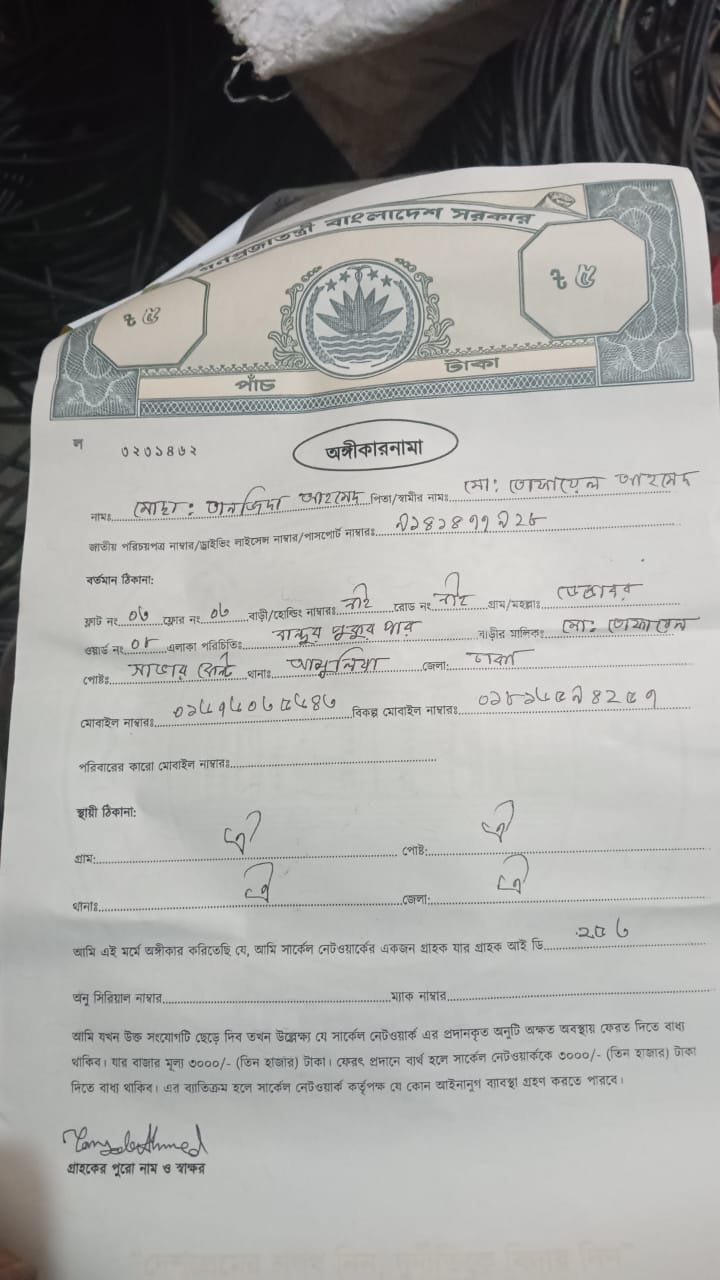 গনপ্রজাতন্ত্রী বাংলাদেশ সরকার
ট ৫ ট ৫
পাঁচ টাকা
ন ০২০১৪৬২
অঙ্গীকারনামা
নামঃ মোছা: তানজিদা আহমেদ পিতা/স্বামীর নামঃ মো: তোফায়েল আহমেদ
জাতীয় পরিচয়পত্র নাম্বার/ড্রাইভিং লাইসেন্স নাম্বার/পাসপোর্ট নাম্বারঃ
বর্তমান ঠিকানা:
ফ্লাট নং ফ্লোর নং বাড়ী/হোল্ডিং নাম্বারঃ নাই রোড নং নাই গ্রাম/মহল্লাঃ
ওয়ার্ড নং ০৮ এলাকা পরিচিতিঃ পুকুর পার বাড়ীর মালিকঃ মো: তোফায়েল
পোষ্টঃ সাভার থানাঃ আশুলিয়া জেলা: ঢাকা
মোবাইল নাম্বারঃ বিকল্প মোবাইল নাম্বারঃ
পরিবারের কারো মোবাইল নাম্বারঃ
স্থায়ী ঠিকানা:
গ্রাম: ঐ পোষ্ট: ঐ
থানাঃ ঐ জেলা: ঐ
আমি এই মর্মে অঙ্গীকার করিতেছি যে, আমি সার্কেল নেটওয়ার্কের একজন গ্রাহক যার গ্রাহক আই ডি
অনু সিরিয়াল নাম্বার ম্যাক নাম্বার
আমি যখন উক্ত সংযোগটি ছেড়ে দিব তখন উল্লেক্ষ্য যে সার্কেল নেটওয়ার্ক এর প্রদানকৃত অনুটি অক্ষত অবস্থায় ফেরত দিতে বাধ্য
থাকিব। যার বাজার মূল্য ৩০০০/- (তিন হাজার) টাকা। ফেরৎ প্রদানে ব্যর্থ হলে সার্কেল নেটওয়ার্ককে ৩০০০/- (তিন হাজার) টাকা
দিতে বাধ্য থাকিব। এর ব্যাতিক্রম হলে সার্কেল নেটওয়ার্ক কর্তৃপক্ষ যে কোন আইনানুগ ব্যাবস্থা গ্রহণ করতে পারবে।
Ahmed
গ্রাহকের পুরো নাম ও স্বাক্ষর